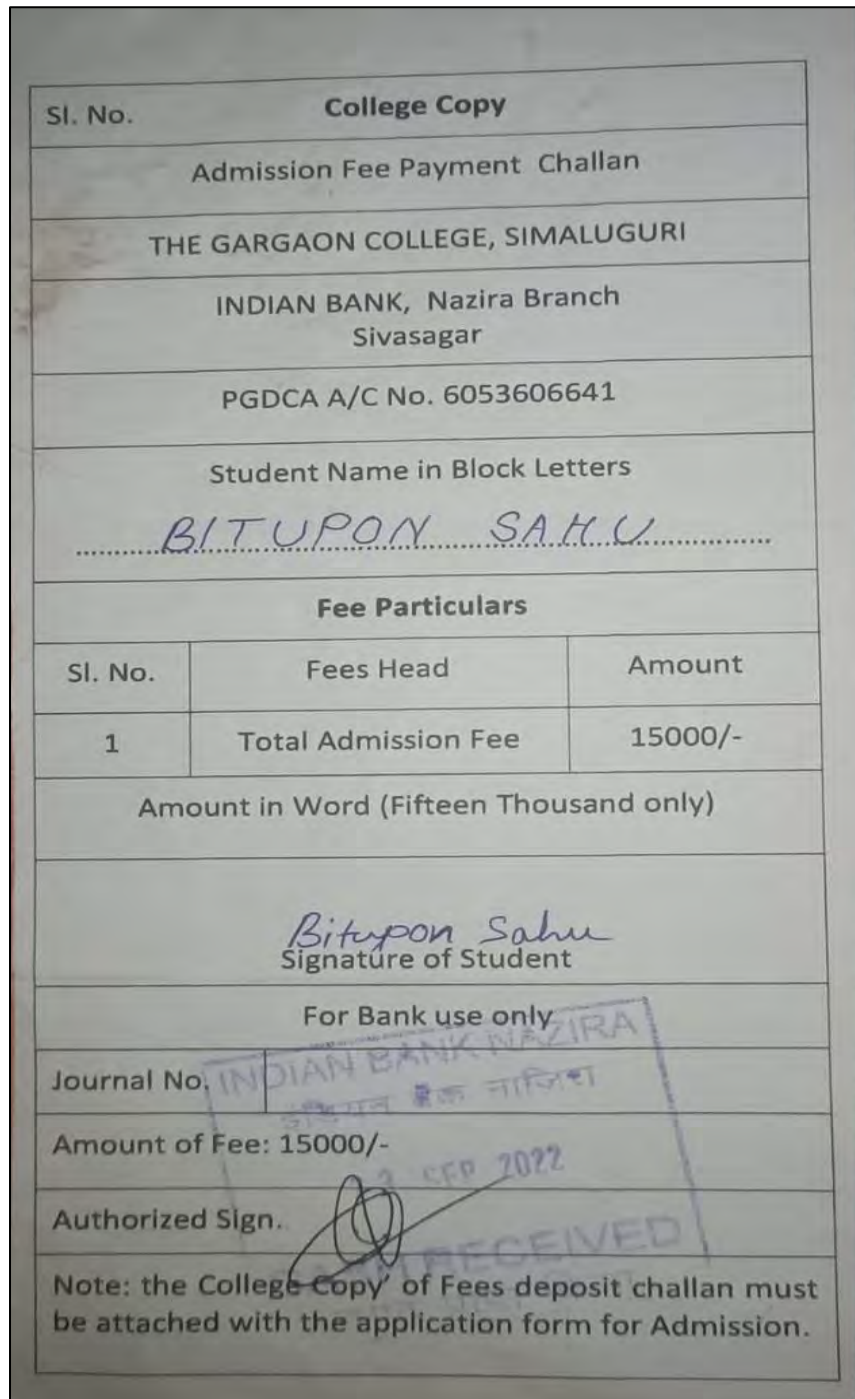 Sl. No. College Copy
Admission Fee Payment Challan
THE GARGAON COLLEGE, SIMALUGURI
INDIAN BANK, Nazira Branch
Sivasagar
PGDCA A/C No. 6053606641
Student Name in Block Letters
BITUPON SAHU
Fee Particulars
Sl. No. Fees Head Amount
1 Total Admission Fee 15000/-
Amount in Word (Fifteen Thousand only)
Bitupon Sahu
Signature of Student
For Bank use only
INDIAN BANK NAZIRA
Journal No.
इंडियन बैंक नाजिरा
Amount of Fee: 15000/-
SEP 2022
Authorized Sign.
RECEIVED
Note: the College Copy' of Fees deposit challan must
be attached with the application form for Admission.